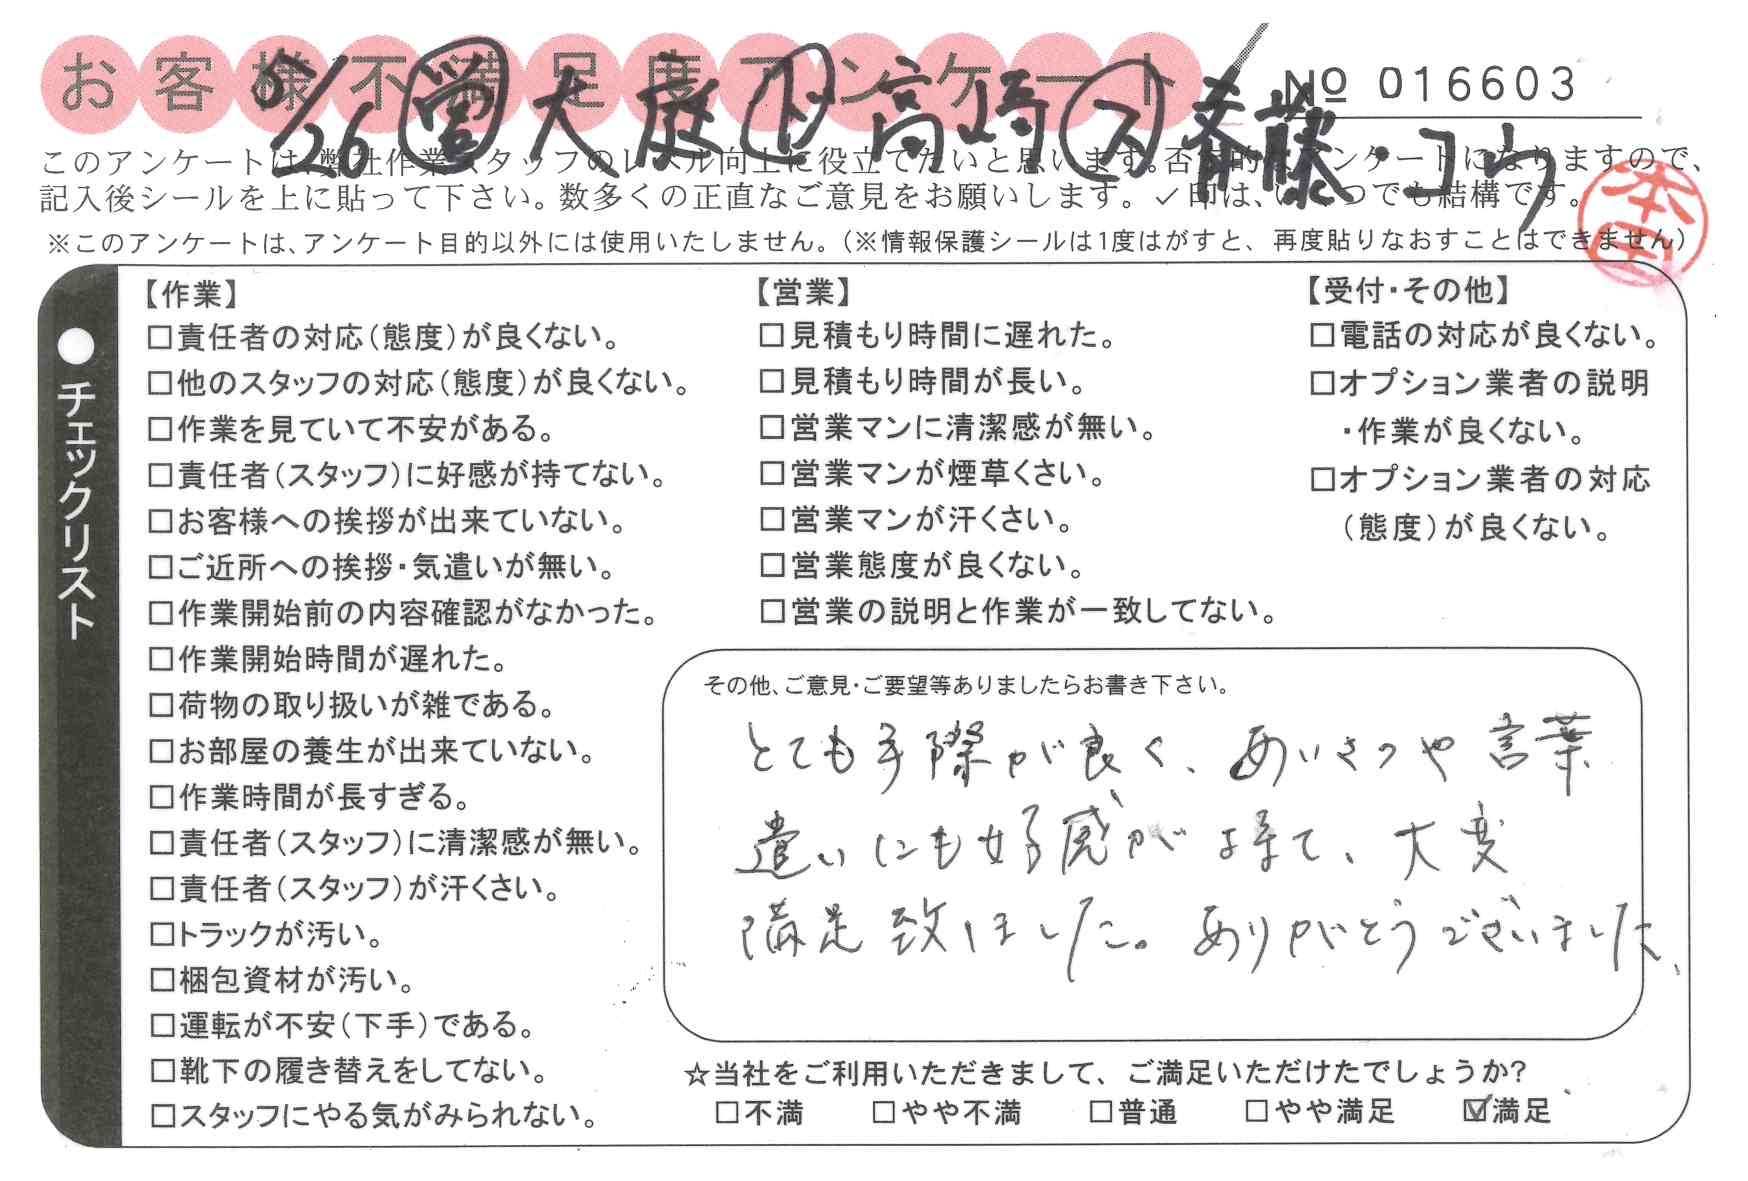 お客様不満足度アンケート
No 016603
/26 営 大庭 下 高崎 ス 斎藤・コウ
このアンケートは、弊社作業スタッフのレベル向上に役立てたいと思います。否定的なアンケートになりますので、
記入後シールを上に貼って下さい。数多くの正直なご意見をお願いします。✓印は、いくつでも結構です。
※このアンケートは、アンケート目的以外には使用いたしません。(※情報保護シールは1度はがすと、再度貼りなおすことはできません)
本田
●チェックリスト
【作業】
□責任者の対応(態度)が良くない。
□他のスタッフの対応(態度)が良くない。
□作業を見ていて不安がある。
□責任者(スタッフ)に好感が持てない。
□お客様への挨拶が出来ていない。
□ご近所への挨拶・気遣いが無い。
□作業開始前の内容確認がなかった。
□作業開始時間が遅れた。
□荷物の取り扱いが雑である。
□お部屋の養生が出来ていない。
□作業時間が長すぎる。
□責任者(スタッフ)に清潔感が無い。
□責任者(スタッフ)が汗くさい。
□トラックが汚い。
□梱包資材が汚い。
□運転が不安(下手)である。
□靴下の履き替えをしてない。
□スタッフにやる気がみられない。
【営業】
□見積もり時間に遅れた。
□見積もり時間が長い。
□営業マンに清潔感が無い。
□営業マンが煙草くさい。
□営業マンが汗くさい。
□営業態度が良くない。
□営業の説明と作業が一致してない。
【受付・その他】
□電話の対応が良くない。
□オプション業者の説明
・作業が良くない。
□オプション業者の対応
(態度)が良くない。
その他、ご意見・ご要望等ありましたらお書き下さい。
とても手際が良く、あいさつや言葉
遣いにも好感が持て、大変
満足致しました。ありがとうございました。
☆当社をご利用いただきまして、ご満足いただけたでしょうか?
□不満 □やや不満 □普通 □やや満足 ☑満足